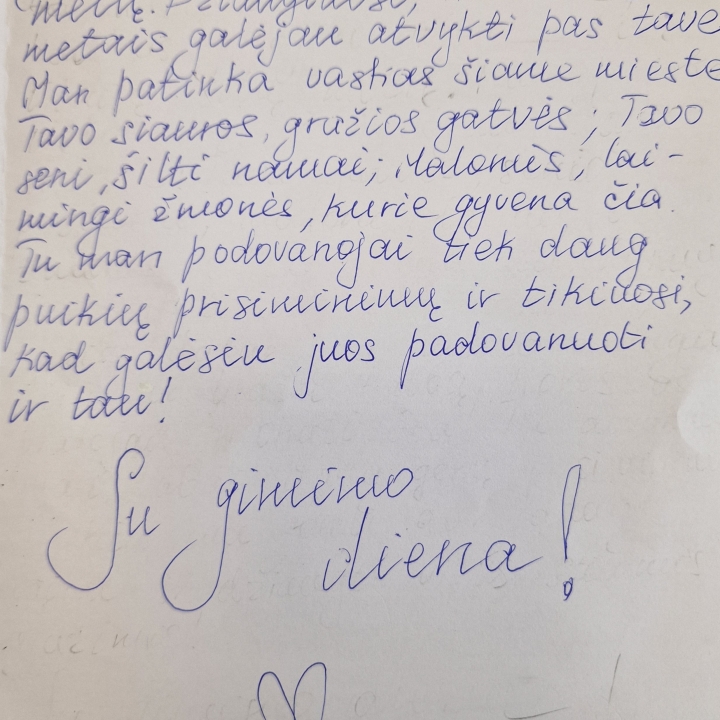 metų. Džiaugiuosi,
metais galėjau atvykti pas tave
Man patinka vaskas šiame mieste
Tavo siauros, gražios gatvės; Tavo
seni, šilti namai; Malonūs, lai-
mingi žmonės, kurie gyvena čia.
Tu man podovanojai tiek daug
puikių prisiminimų ir tikiuosi,
kad galėsiu juos padovanuoti
ir tau!
Su gimimo
diena!